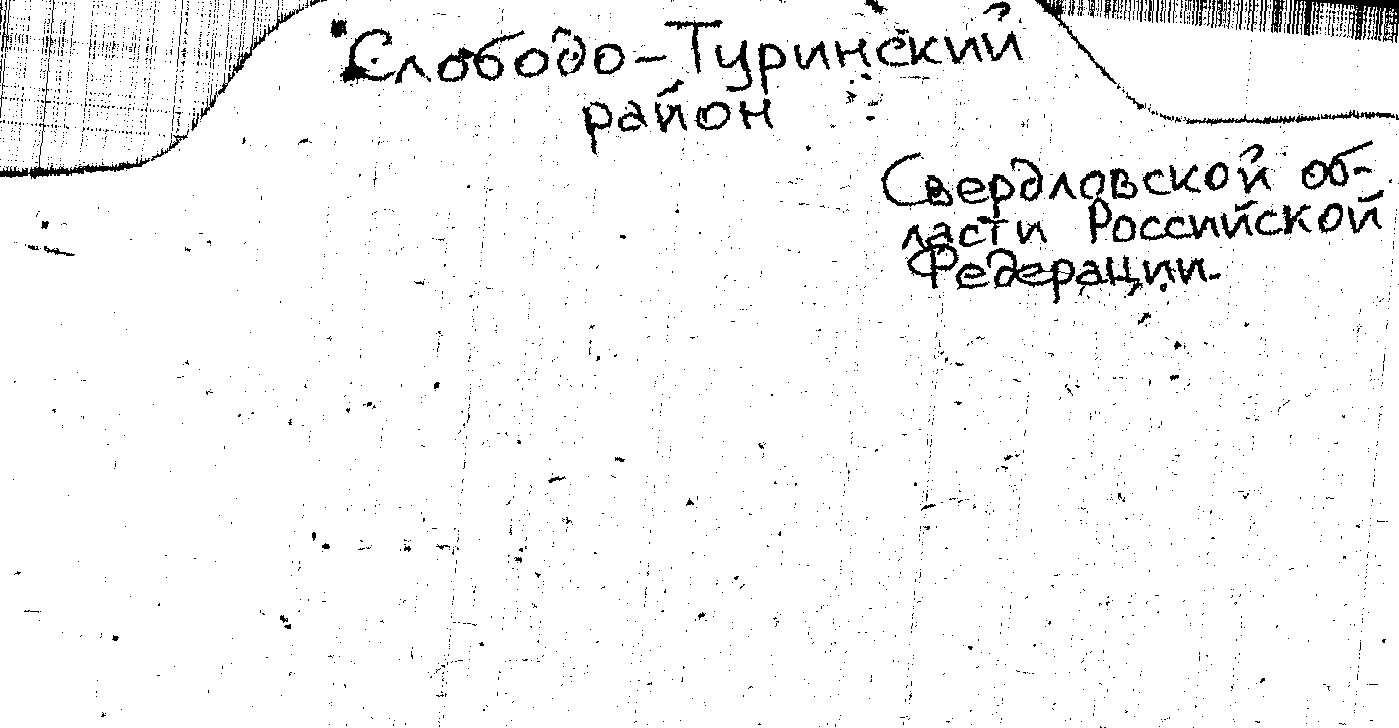 Слободо-Туринский
район
Свердловской об-
ласти Российской
Федерации.